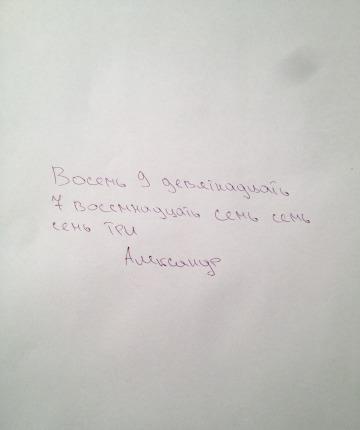 Восемь 9 девятнадцать
7 восемнадцать семь семь
семь три
Александр